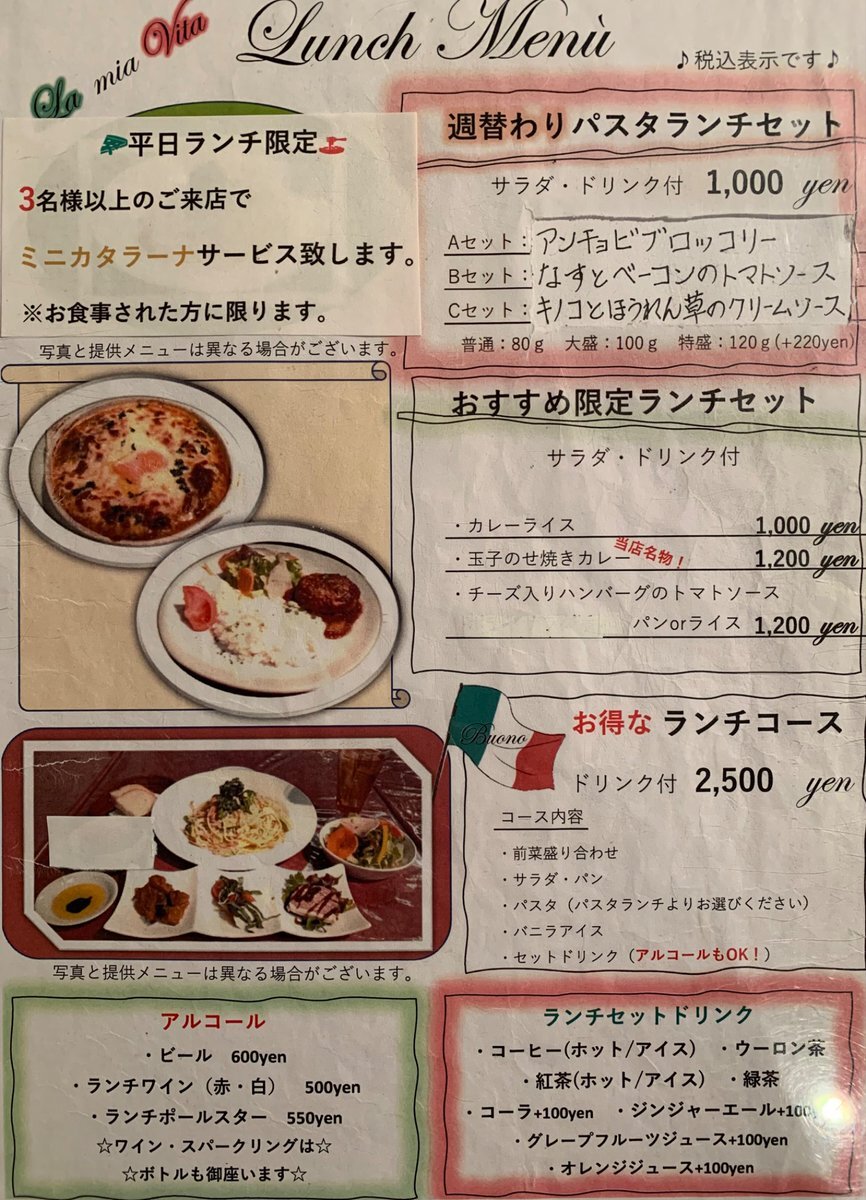 La mia Vita
Lunch Menù
♪税込表示です♪
平日ランチ限定
3名様以上のご来店で
ミニカタラーナサービス致します。
※お食事された方に限ります。
週替わりパスタランチセット
サラダ・ドリンク付 1,000 yen
Aセット：アンチョビブロッコリー
Bセット：なすとベーコンのトマトソース
Cセット：キノコとほうれん草のクリームソース
普通：80g 大盛：100g 特盛：120g(+220yen)
写真と提供メニューは異なる場合がございます。
おすすめ限定ランチセット
サラダ・ドリンク付
・カレーライス 1,000 yen
・玉子のせ焼きカレー 当店名物！ 1,200 yen
・チーズ入りハンバーグのトマトソース
パンorライス 1,200 yen
Buono
お得な ランチコース
ドリンク付 2,500 yen
コース内容
・前菜盛り合わせ
・サラダ・パン
・パスタ（パスタランチよりお選びください）
・バニラアイス
・セットドリンク（アルコールもOK！）
写真と提供メニューは異なる場合がございます。
アルコール
・ビール 600yen
・ランチワイン（赤・白） 500yen
・ランチポールスター 550yen
☆ワイン・スパークリングは☆
☆ボトルも御座います☆
ランチセットドリンク
・コーヒー(ホット/アイス) ・ウーロン茶
・紅茶(ホット/アイス) ・緑茶
・コーラ+100yen ・ジンジャーエール+100yen
・グレープフルーツジュース+100yen
・オレンジジュース+100yen